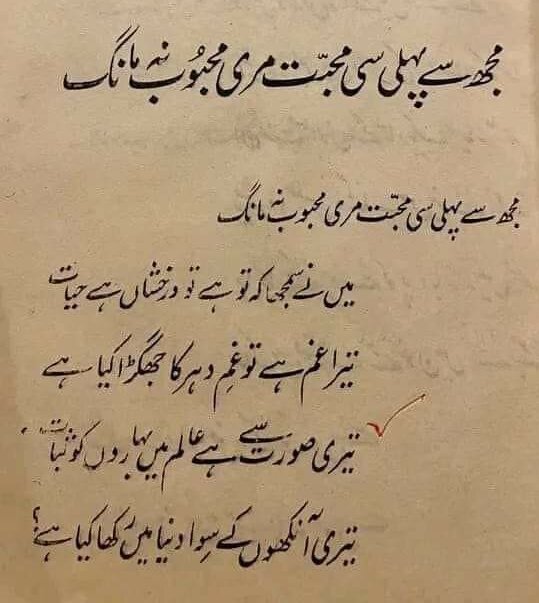 مجھ سے پہلی سی محبّت مری محبُوب نہ مانگ
مجھ سے پہلی سی محبّت مری محبوب نہ مانگ
میں نے سمجھا کہ تو ہے تو درخشاں ہے حیات
تیرا غم ہے تو غمِ دہر کا جھگڑا کیا ہے
تیری صورت سے ہے عالم میں بہاروں کو ثبات
تیری آنکھوں کے سِوا دنیا میں رکھا کیا ہے؟